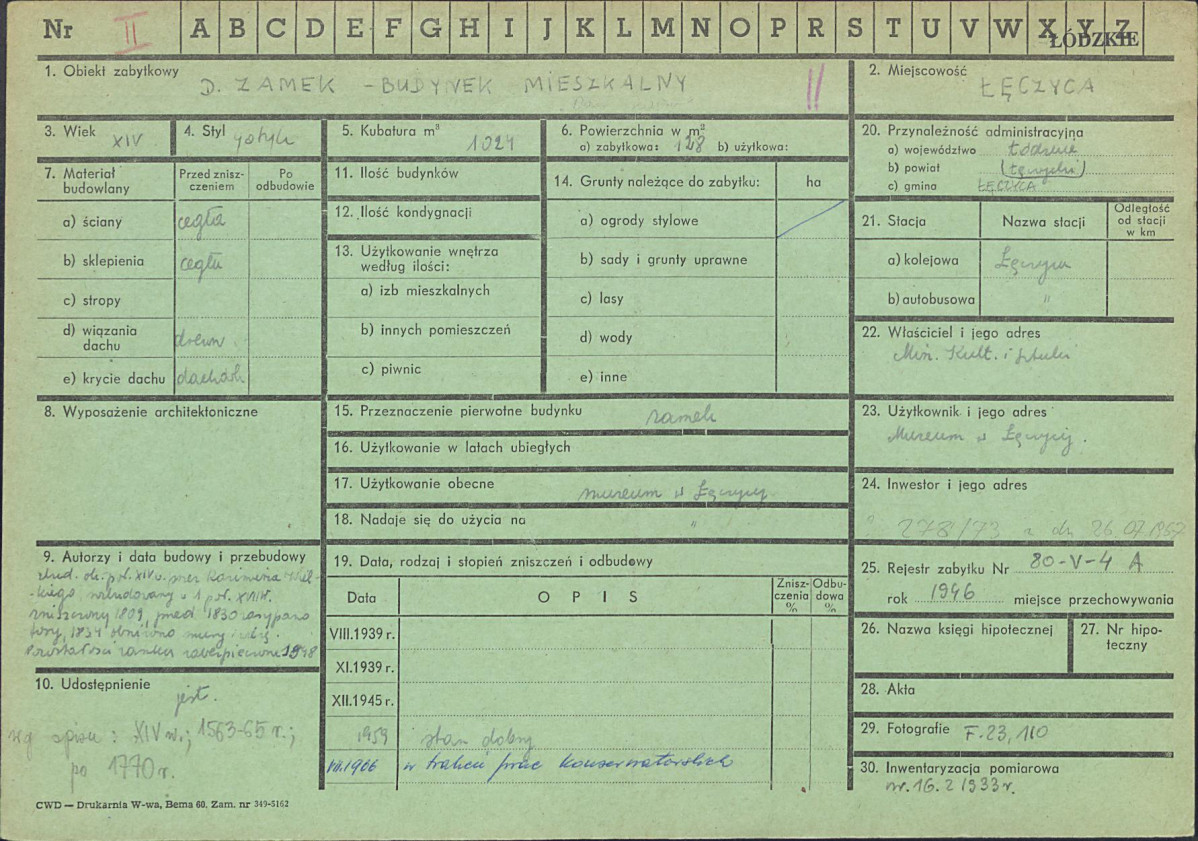 Nr II A B C D E F G H I J K L M N O P R S T U V W X Y Z
ŁÓDZKIE
1. Obiekt zabytkowy
D. ZAMEK - BUDYNEK MIESZKALNY II
2. Miejscowość
ŁĘCZYCA
3. Wiek XIV
4. Styl gotyk
5. Kubatura m³ 1024
6. Powierzchnia w m²
a) zabytkowa: 128 b) użytkowa:
7. Materiał budowlany
Przed zniszczeniem
Po odbudowie
a) ściany cegła
b) sklepienia cegła
c) stropy
d) wiązania dachu drewn.
e) krycie dachu dachówk
8. Wyposażenie architektoniczne
9. Autorzy i data budowy i przebudowy
zbud. ok. poł. XIV w. przez Kazimierza Wiel-
kiego, rozbudowany w 1 poł. XVI w.
zniszczony 1809, przed 1830 zasypano
fosy, 1834 obniżono mury i
Pozostałości zamku zabezpieczone 1948
10. Udostępnienie
jest.
wg spisu: XIV w.; 1563-65 r.;
po 1770 r.
CWD — Drukarnia W-wa, Bema 60. Zam. nr 349-5162
11. Ilość budynków
12. Ilość kondygnacji
13. Użytkowanie wnętrza
według ilości:
a) izb mieszkalnych
b) innych pomieszczeń
c) piwnic
14. Grunty należące do zabytku: ha
a) ogrody stylowe
b) sady i grunty uprawne
c) lasy
d) wody
e) inne
15. Przeznaczenie pierwotne budynku zamek
16. Użytkowanie w latach ubiegłych
17. Użytkowanie obecne muzeum w Łęczycy
18. Nadaje się do użycia na "
19. Data, rodzaj i stopień zniszczeń i odbudowy
Data OPIS Zniszczenia % Odbudowa %
VIII.1939 r.
XI.1939 r.
XII.1945 r.
1959 stan dobry
VII.1966 w trakcie prac konserwatorskich
20. Przynależność administracyjna
a) województwo Łódzkie
b) powiat (łęczycki)
c) gmina ŁĘCZYCA
21. Stacja
Nazwa stacji
Odległość od stacji w km
a) kolejowa Łęczyca
b) autobusowa "
22. Właściciel i jego adres
Min. Kult. i Sztuki
23. Użytkownik i jego adres
Muzeum w Łęczycy.
24. Inwestor i jego adres
278/73 z dn. 26.07.1967
25. Rejestr zabytku Nr 80-V-4 A
rok 1946 miejsce przechowywania
26. Nazwa księgi hipotecznej
27. Nr hipoteczny
28. Akta
29. Fotografie F.23, 110
30. Inwentaryzacja pomiarowa
nr. 16. z 1933 r.